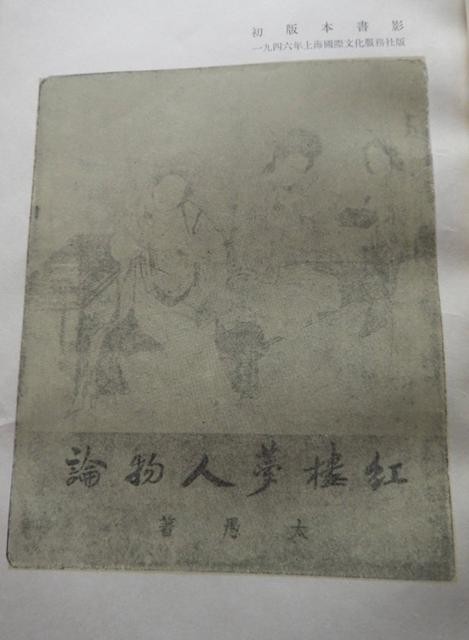 初版本書影
一九四六年上海國際文化服務社版
紅樓夢人物論
太愚著